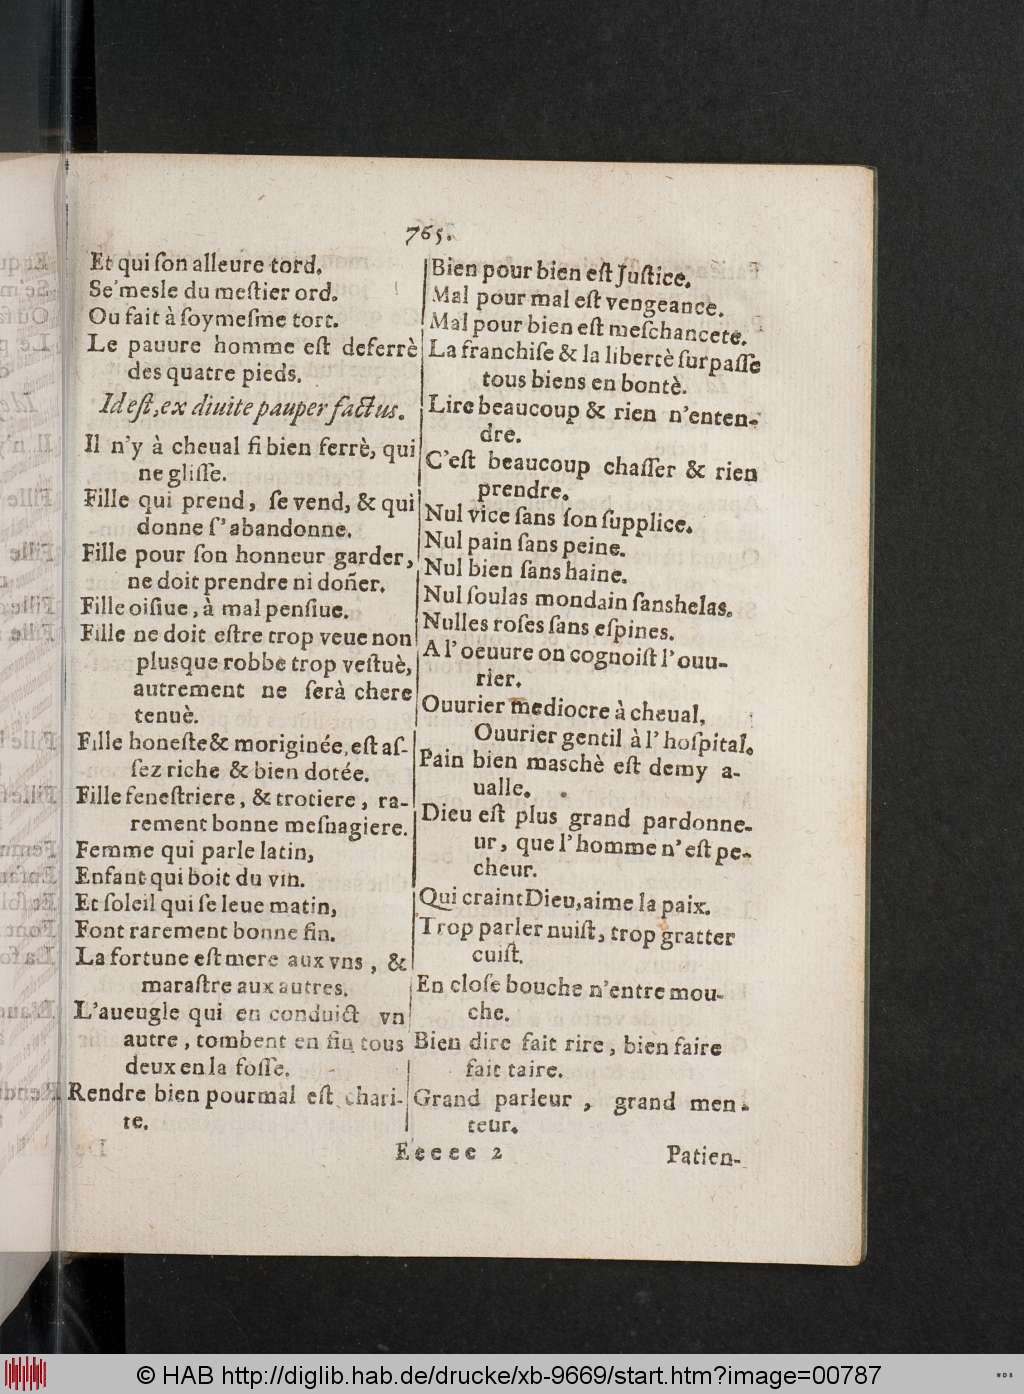 765.
Et qui ſon alleure tord.
Se'mesle du meſtier ord.
Ou fait à ſoymeſme tort.
Le pauure homme eſt deferrè
des quatre pieds.
Id eſt, ex diuite pauper factus.
Il n'y à cheual ſi bien ferrè, qui
ne gliſſe.
Fille qui prend, ſe vend, & qui
donne ſ'abandonne.
Fille pour ſon honneur garder,
ne doit prendre ni doñer.
Fille oiſiue, à mal penſiue.
Fille ne doit eſtre trop veue non
plusque robbe trop veſtuè,
autrement ne ſerà chere
tenuè.
Fille honeſte & moriginée, eſt aſ-
ſez riche & bien dotée.
Fille feneſtriere, & trotiere, ra-
rement bonne meſnagiere.
Femme qui parle latin,
Enfant qui boit du vin.
Et ſoleil qui ſe leue matin,
Font rarement bonne fin.
La fortune eſt mere aux vns, &
maraſtre aux autres.
L'aueugle qui en conduict vn
autre, tombent en fin tous
deux en la foſſe.
Rendre bien pour mal eſt chari-
te.
Bien pour bien eſt Juſtice.
Mal pour mal eſt vengeance.
Mal pour bien eſt meſchancete.
La franchiſe & la libertè ſurpaſſe
tous biens en bontè.
Lire beaucoup & rien n'enten-
dre.
C'eſt beaucoup chaſſer & rien
prendre.
Nul vice ſans ſon ſupplice.
Nul pain ſans peine.
Nul bien ſans haine.
Nul ſoulas mondain ſanshelas.
Nulles roſes ſans eſpines.
A l'oeuure on cognoiſt l'ouu-
rier.
Ouurier mediocre à cheual,
Ouurier gentil à l'hoſpital.
Pain bien maschè eſt demy a-
ualle.
Dieu eſt plus grand pardonne-
ur, que l'homme n'eſt pe-
cheur.
Qui craint Dieu, aime la paix.
Trop parler nuiſt, trop gratter
cuiſt.
En cloſe bouche n'entre mou-
che.
Bien dire fait rire, bien faire
fait taire.
Grand parleur, grand men-
teur.
Eeeee 2
Patien-
© HAB http://diglib.hab.de/drucke/xb-9669/start.htm?image=00787